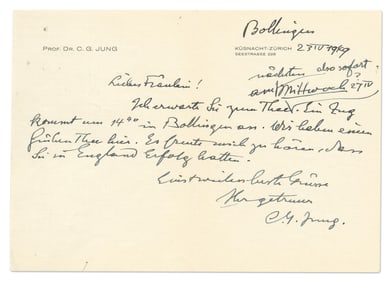 Bollingen
PROF. DR. C. G. JUNG
KÜSNACHT-ZÜRICH
SEESTRASSE 228
nächsten also sofort?
am Mittwoch 27 IV
Liebes Fräulein!
Ich erwarte Sie zum Thee. Ein Zug
kommt um 14 in Bollingen an. Wir haben einen
guten Thee hier. Es freute mich zu hören, dass
Sie in England Erfolg hatten.
Einstweilen beste Grüsse
Ihr getreuer
C. G. Jung.